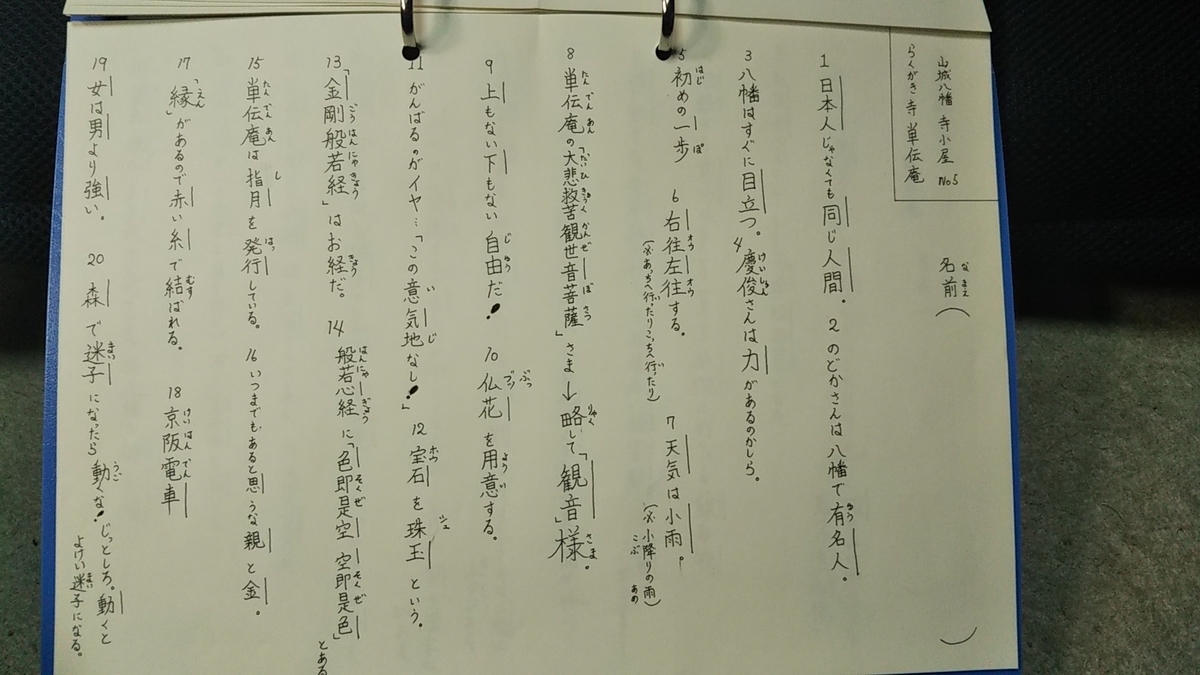 山城八幡 寺小屋 No5
らくがき寺 単伝庵
名前(なまえ) ( )
1 日本人じゃなくても同じ人間。 2 のどかさんは八幡で有名人。
3 八幡はすぐに目立つ。 4 慶俊さんは力があるのかしら。
5 初めの一歩 6 右往左往する。(※あっちへ行ったりこっちへ行ったり) 7 天気は小雨。(※小降りの雨)
8 単伝庵の「大悲救苦観世音菩薩」さま→略して「観音」様。
9 上もない下もない自由だ! 10 仏花を用意する。
11 がんばるのがイヤ…「この意気地なし!」 12 宝石を珠玉という。
13 「金剛般若経」はお経だ。 14 般若心経に「色即是空 空即是色」とある
15 単伝庵は指月を発行している。 16 いつまでもあると思うな親と金。
17 「縁」があるので赤い糸で結ばれる。 18 京阪電車
19 女は男より強い。 20 森で迷子になったら動くな!じっとしろ。動くとよけい迷子になる。